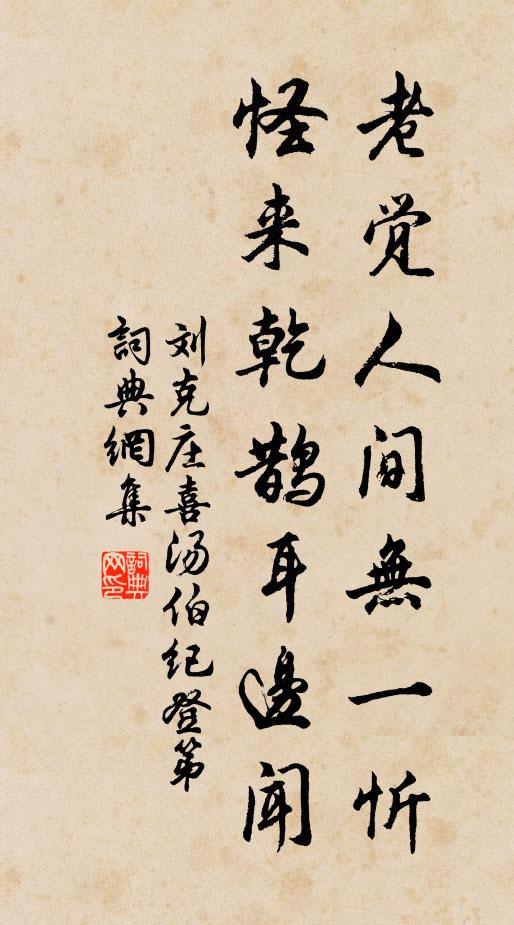 老觉人间無一忻
怪来乾鹊耳邊闻
刘克庄喜汤伯纪登第
詞典網集
詞典网印